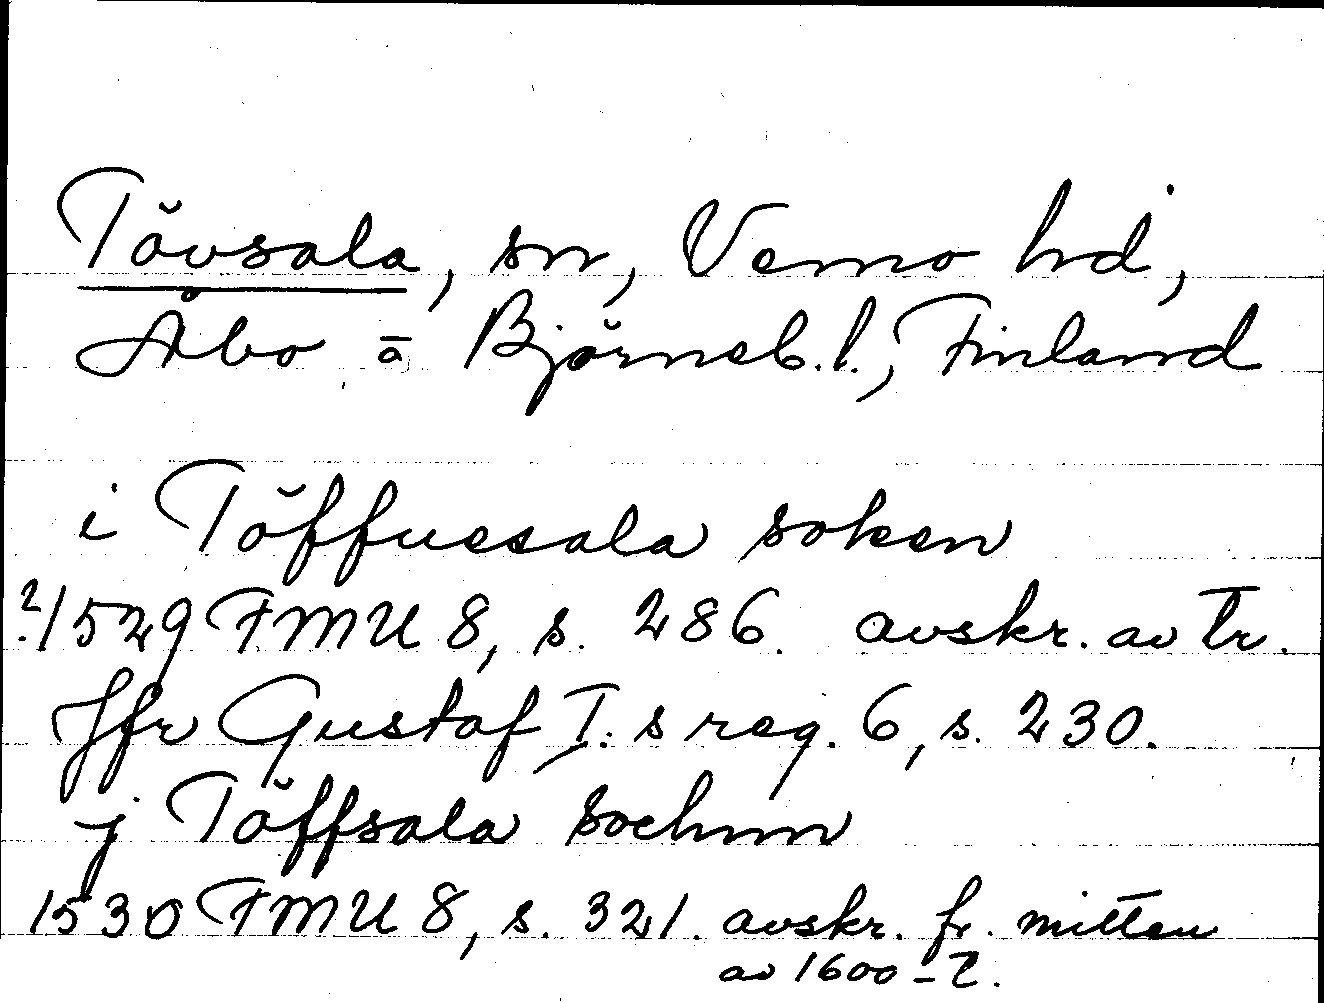 Tövsala, sn, Vemo hd,
Åbo o Björneb. l., Finland
i Töffuesala soken
?/1529 FMU 8, s. 286. avskr. av tr.
Jfr Gustaf I:s reg. 6, s. 230.
j Töffsala sochnn
1530 FMU 8, s. 321. avskr. fr. mitten
av 1600-t.